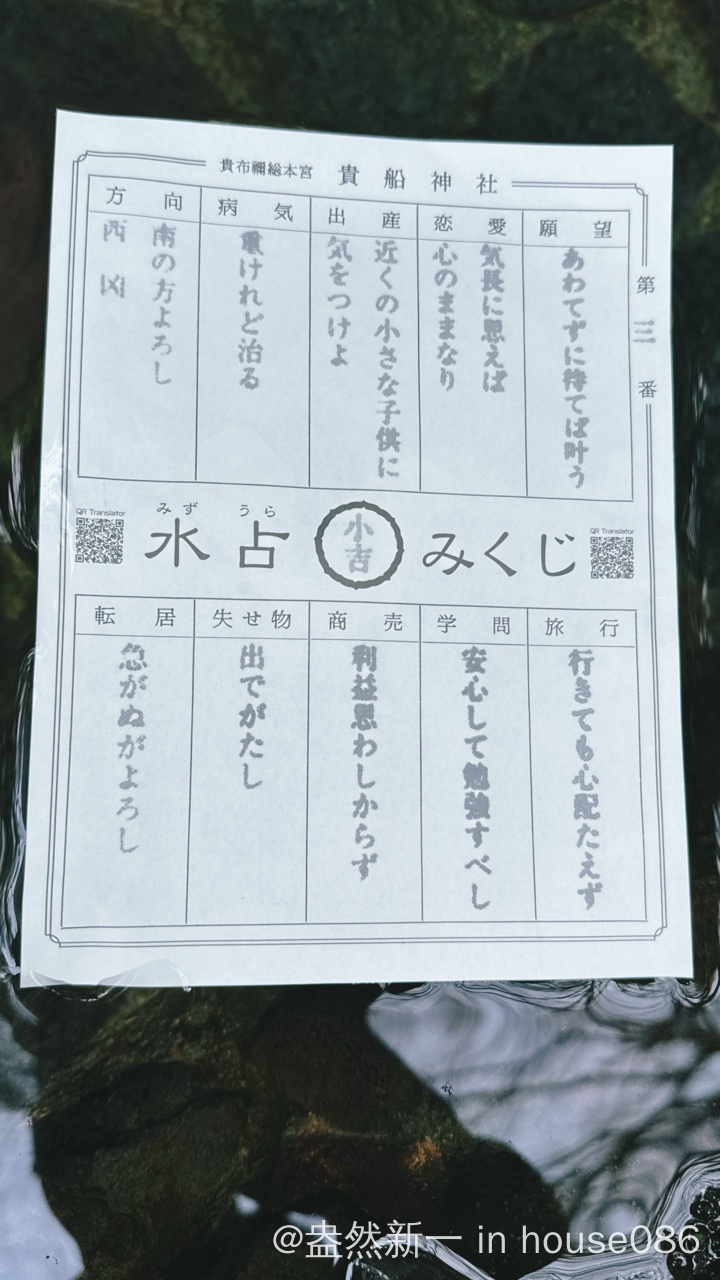 貴布禰総本宮 貴船神社
第三番
願望
あわてずに待てば叶う
恋愛
気長に思えば
心のままなり
出産
近くの小さな子供に
気をつけよ
病気
重けれど治る
方向
南の方よろし
西 凶
QR Translator
みず うら
水占
小吉
みくじ
QR Translator
旅行
行きても心配たえず
学問
安心して勉強すべし
商売
利益思わしからず
失せ物
出でがたし
転居
急がぬがよろし
@盎然新一 in house086